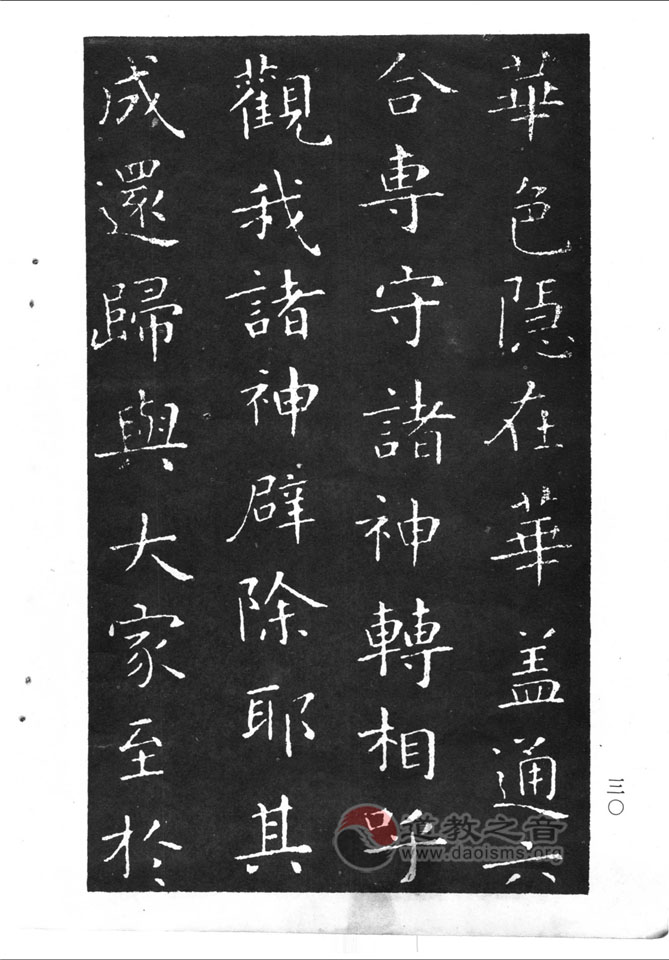 華色隱在華盖通六
合專守諸神轉相呼
觀我諸神辟除耶其
成還歸與大家至於
三〇
道教之音
www.daoisms.org